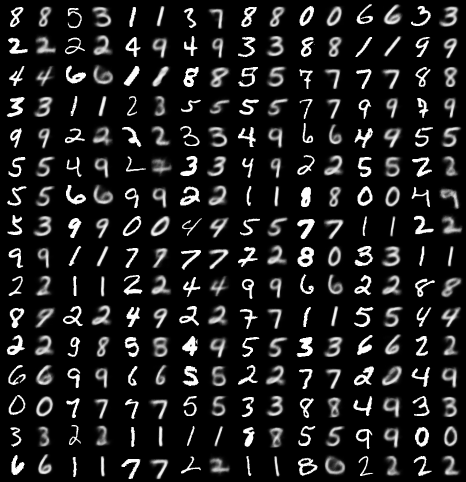 8 8 5 3 1 1 3 7 8 8 0 0 6 6 3 3
2 2 2 2 4 9 4 9 3 3 8 8 1 1 9 9
4 4 6 6 1 1 8 8 5 5 7 7 7 7 8 8
3 3 1 1 2 3 5 5 5 5 7 7 9 9 7 9
9 9 2 2 2 2 3 3 4 9 6 6 4 9 5 5
5 5 4 9 2 3 3 4 9 2 2 5 5 2 2
5 5 6 6 9 9 2 2 1 1 8 8 0 0 4 9
5 3 9 9 0 0 4 4 5 5 7 7 1 1 2 2
9 9 1 1 7 9 7 7 7 2 8 0 3 3 1 1
2 2 1 1 2 2 4 4 9 9 6 6 2 2 8 8
8 9 2 2 4 9 2 2 7 7 1 1 5 5 4 4
2 2 9 8 5 8 4 9 5 5 3 3 6 6 2 2
6 6 9 9 6 6 5 5 2 2 7 7 2 0 4 9
0 0 7 7 7 7 5 5 3 3 8 8 4 9 3 3
3 3 2 2 1 1 1 1 8 8 5 5 9 9 0 0
6 6 1 1 7 7 2 2 1 1 8 0 2 2 2 2